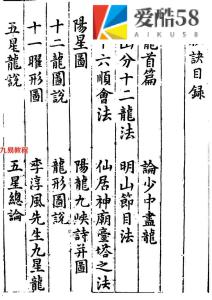 爱酷58
AIKU58
訣目錄
龍首篇
論少中盡龍
山分十二龍法
明山節目法
十六順會法
仙居神廟臺塔之法
陽星圖
陽龍九峽詩并圖
十二龍圖說
龍形圖說
十一曜形圖
李淳風先生九星龍
五星龍說
五星總論
九易教程